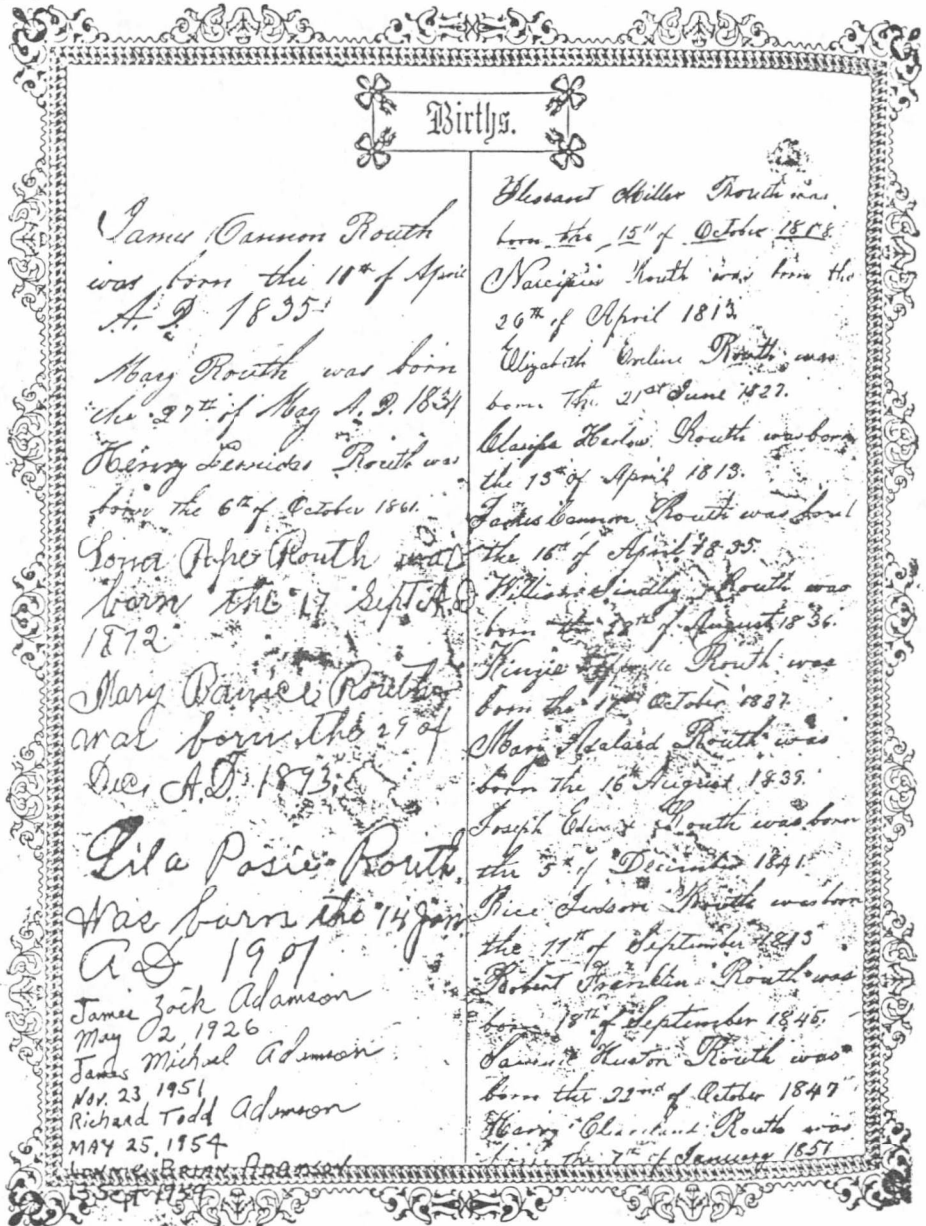 Births.
James Cannon Routh
was born the 18th of April
A. D. 1835
Mary Routh was born
the 27th of May A. D. 1834
Henry Leonidas Routh was
born the 6th of October 1861.
Lona Pope Routh was
born the 17 Sept A.D
1872
Mary Routh
was born the 29 of
Dec, A.D. 1893.
Lila Posie Routh
Was burn the 14 Jan
A D 1901
James Zack Adamson
May 2, 1926
James Michael Adamson
Nov. 23 1951
Richard Todd Adamson
MAY 25, 1954
BRIAN ADAMSON
Sept 1959
Pleasant Miller Routh was
born the 15th of October
Routh was born the
26th of April 1813
Elizabeth Eveline Routh was
born the 21st June 1827.
Harlow Routh was born
the 13th of April 1813.
James Cannon Routh was born
the of April 1835.
William Lindley Routh was
born the of August 1836.
Routh was
born the October 1837
Mary Routh was
born the 16 August 1839.
Joseph Routh was born
the 5th of December 1841
Rice Judson Routh was born
the 17th of September 1843
Robert Franklin Routh was
born 18th of September 1845.
Huston Routh was
born the 22nd of October 1847
Routh was
born the 7th of January 1851